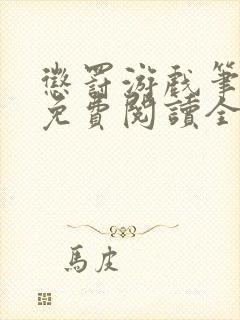 懲罰游戲筆
免費閱讀全
馬皮